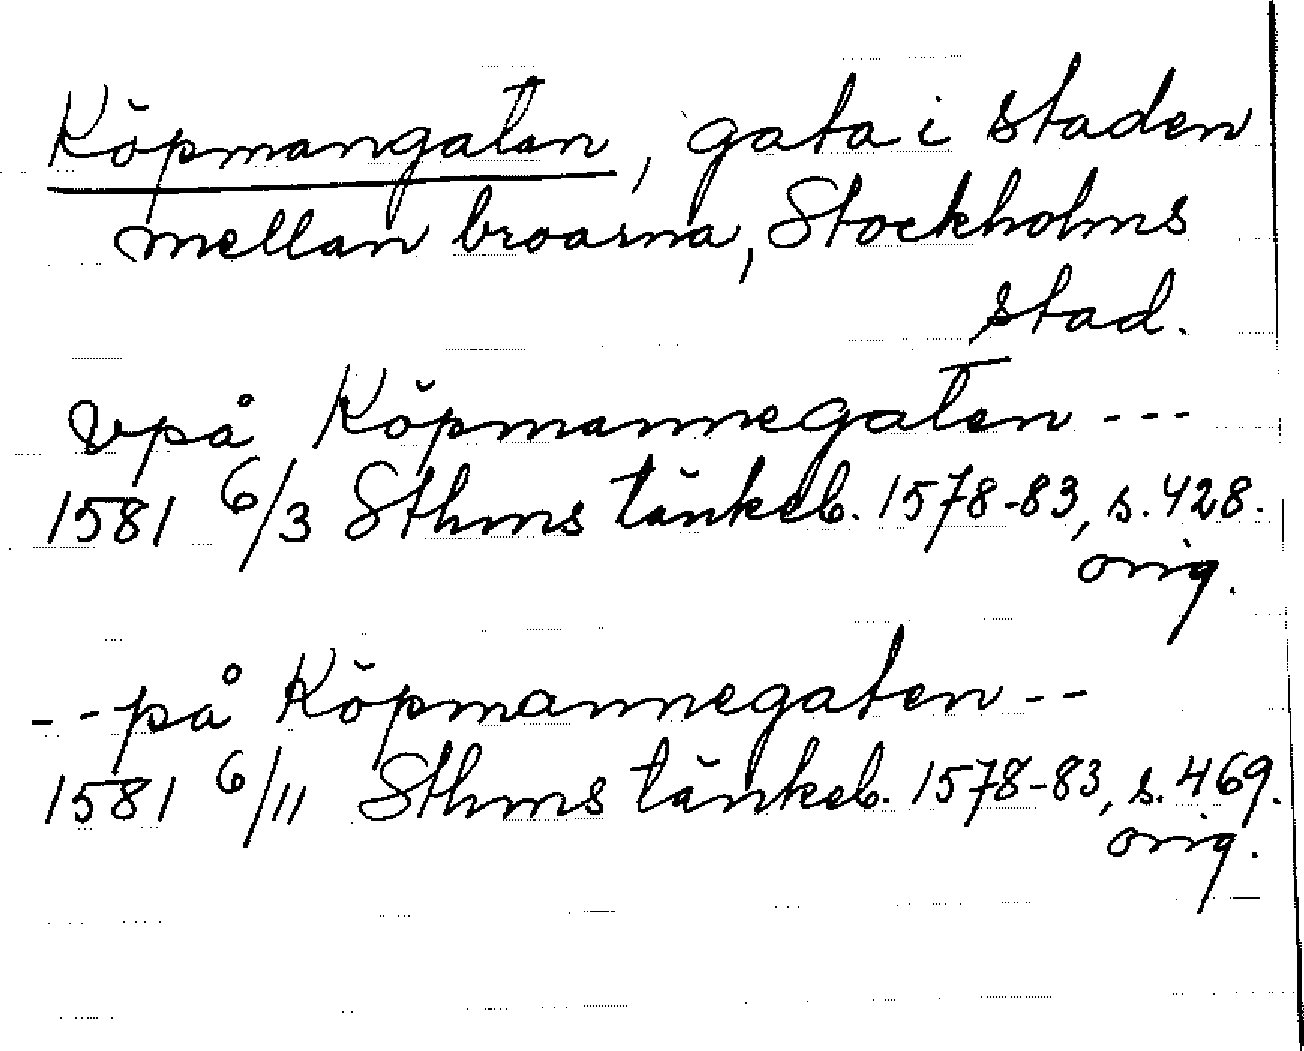 Köpmangatan, gata i staden
mellan broarna, Stockholms
stad.
vpå Köpmannegaten ---
1581 6/3 Sthms tänkeb. 1578-83, s. 428.
orig.
-- på Köpmannegaten --
1581 6/11 Sthms tänkeb. 1578-83, s. 469.
orig.